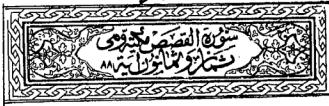 سورة القصص مكية وهي
ثمان وثمانون آية ٨٨